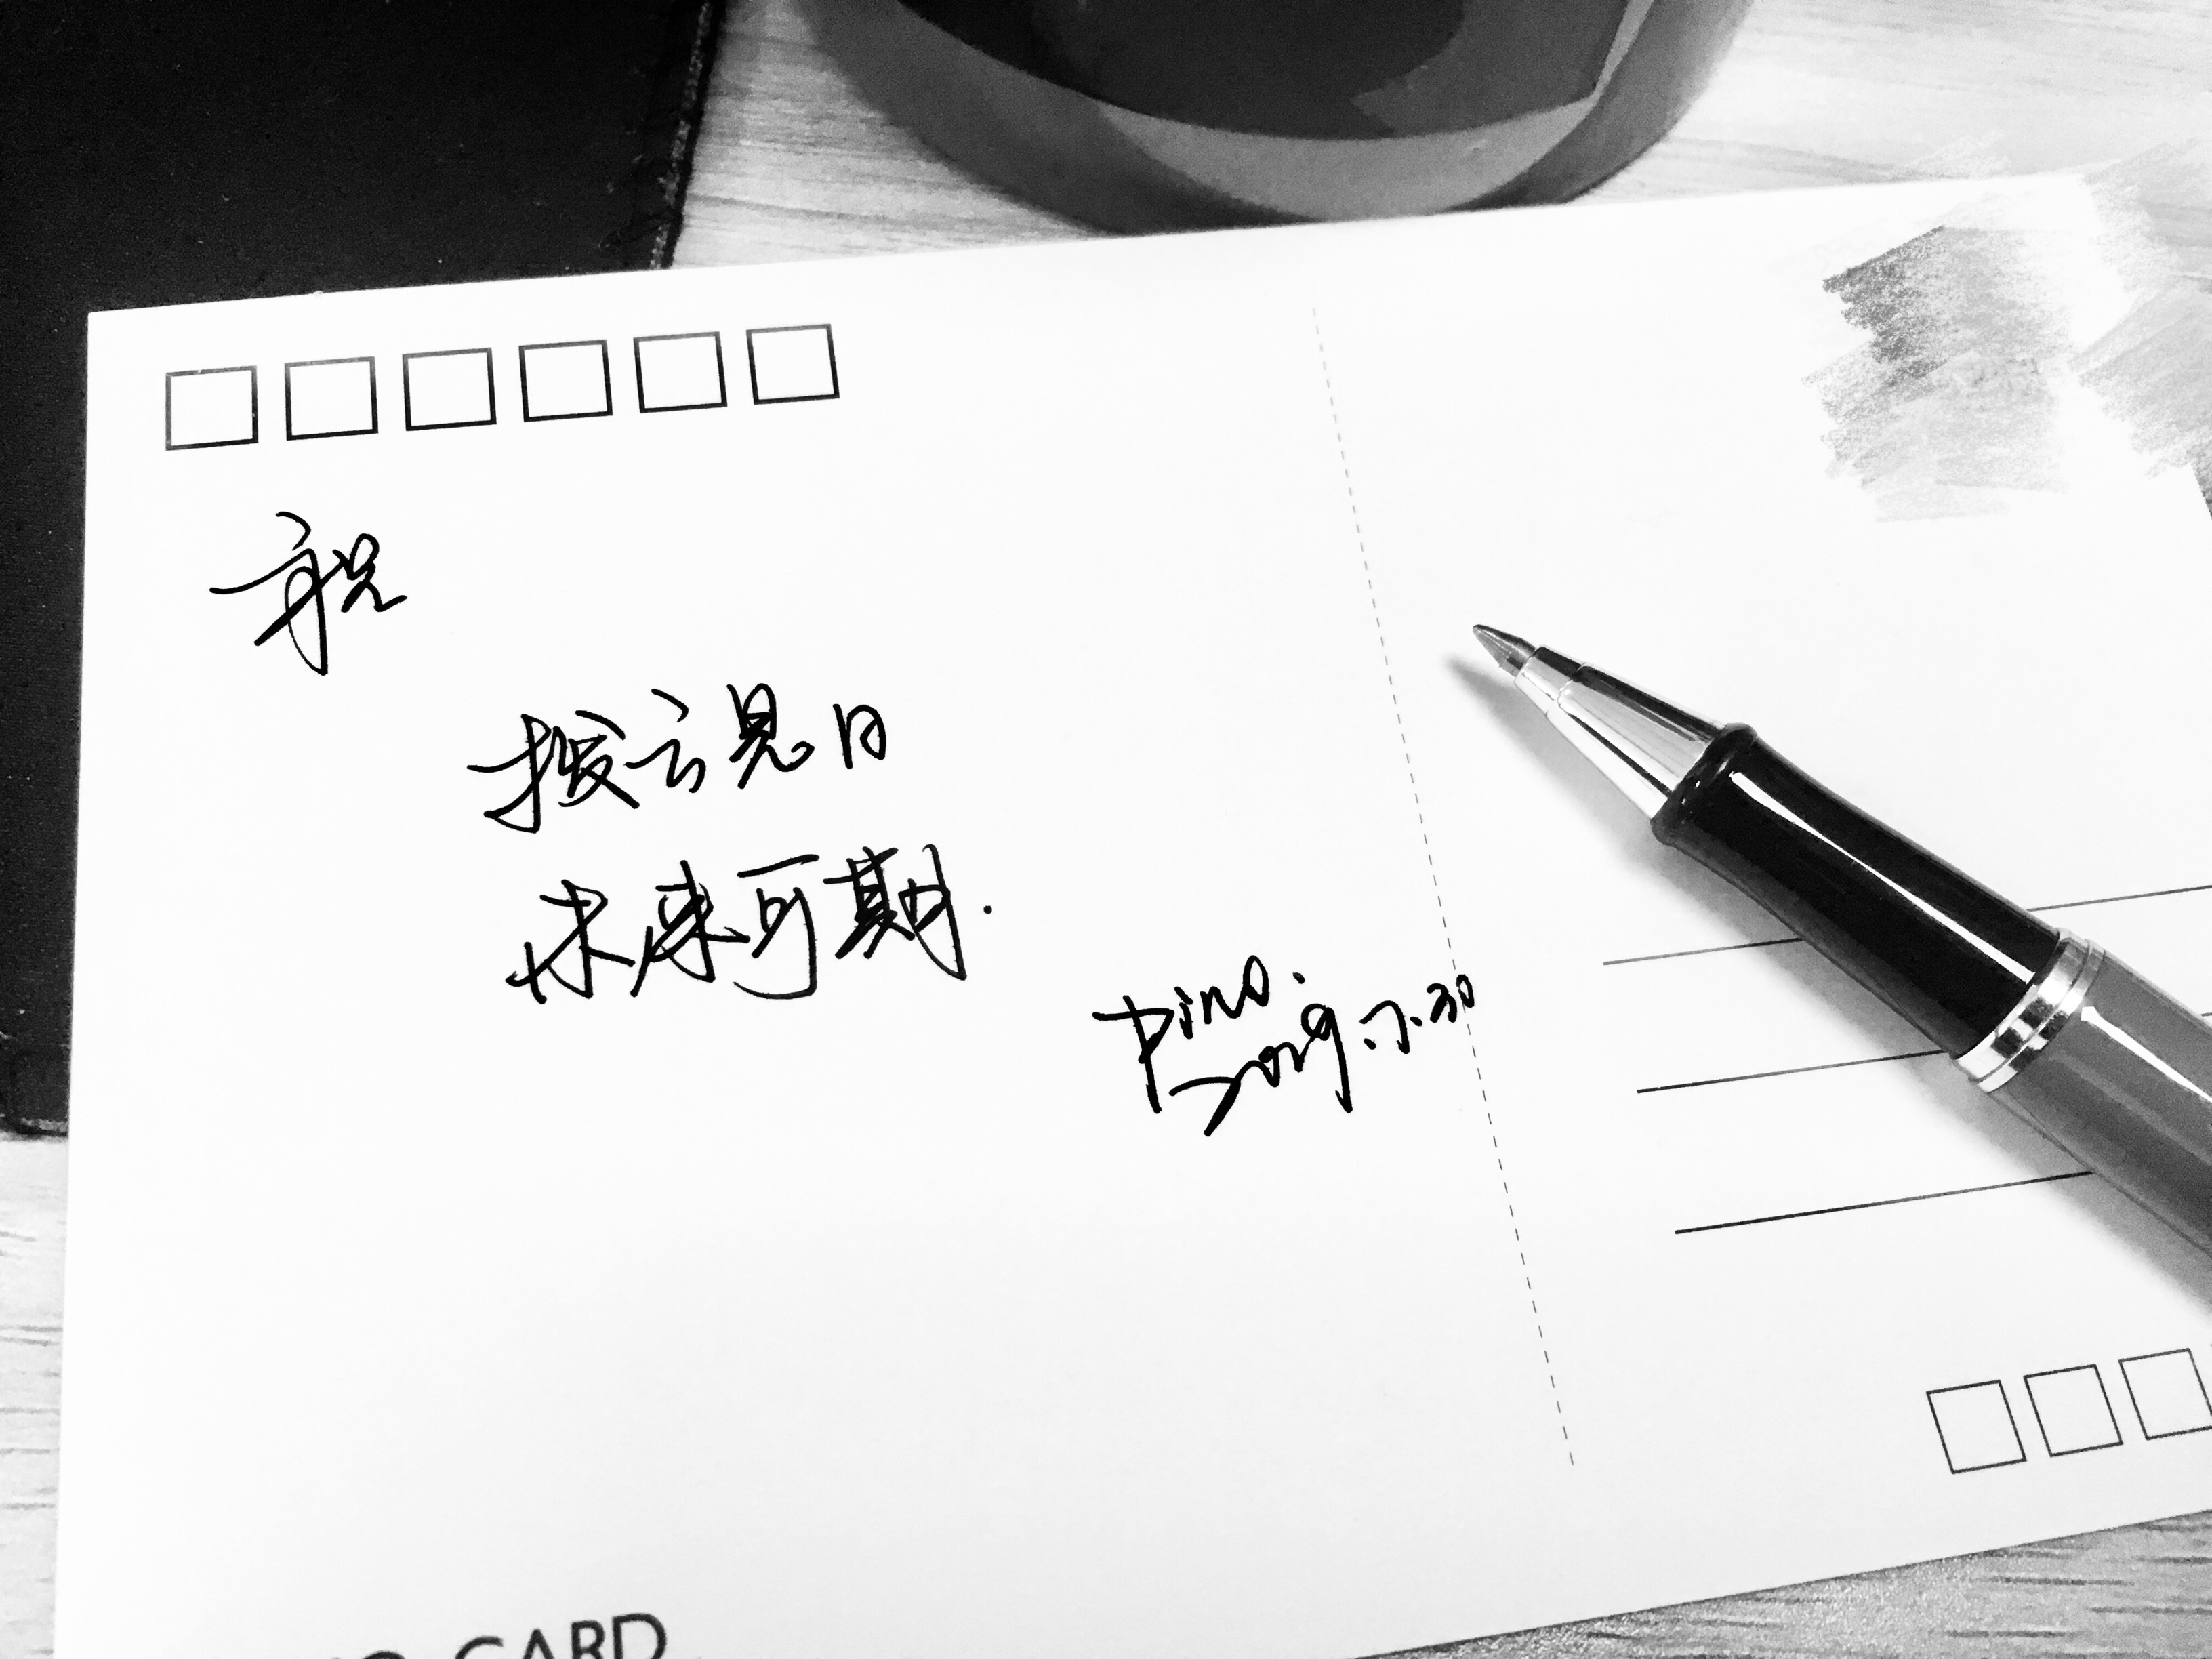 祝
拨云见日
未来可期.
Dino.
2019.7.30
CARD